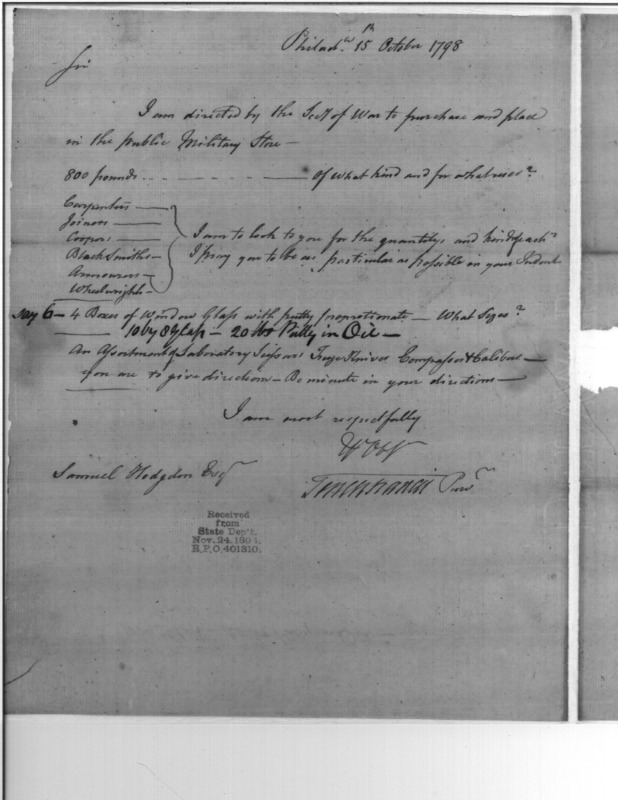 Philadᵃ 15th October 1798
Sir
I am directed by the Secy of War to purchase and place
in the public Military Store —
800 pounds . . . — of what kind and for what uses?
Carpenters —
Joiners —
Coopers —
Black Smiths —
Armourers —
Wheelwrights —
I am to look to you for the quantity, and kinds of each
I pray you to be as particular as possible in your Indent
say 6 — 4 Boxes of Window Glass with putty proportionate — What Sizes?
— 10 by 8 Glass — 20 lbs Putty in Oil —
An Assortment of Laboratory Scissors Fuze Knives Compasses & Calibers —
you are to give direction — Be minute in your directions —
I am most respectfully
Yr Ob St
Samuel Hodgdon Esqr
Tench Francis Purvr
Received
from
State Dep't.
Nov. 24, 1894.
R.P.O. 401310.